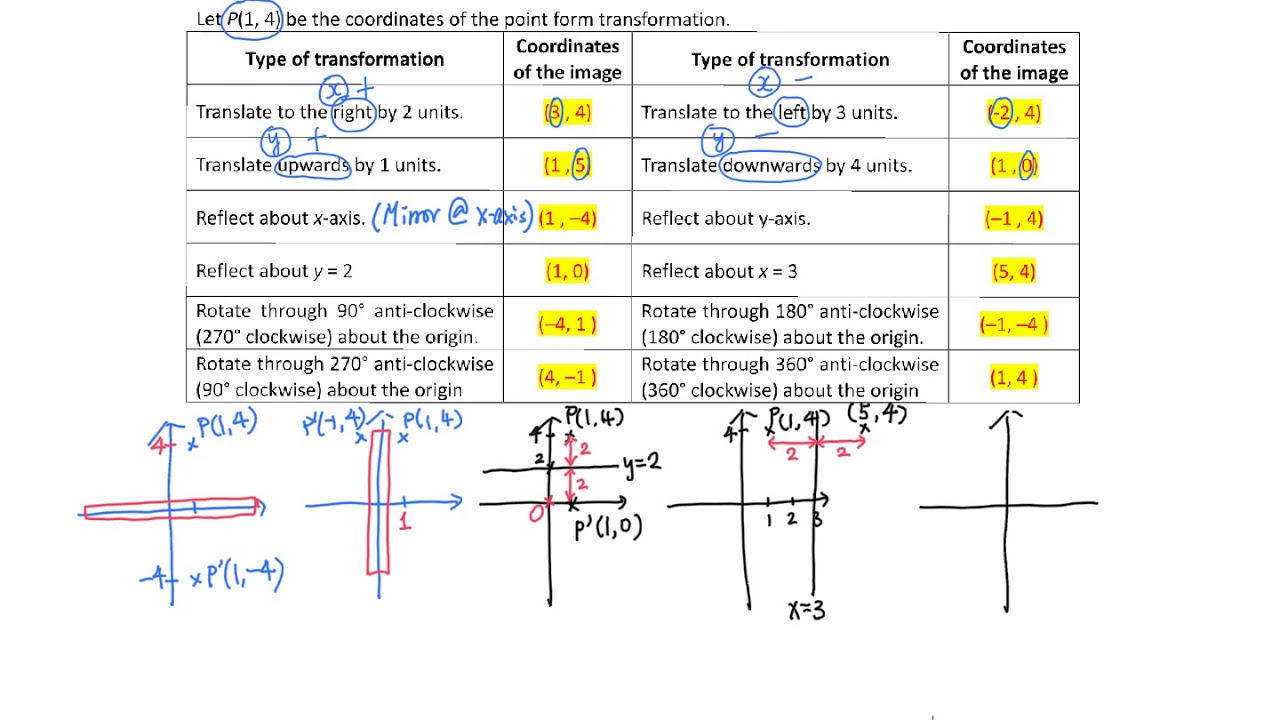 Let P(1, 4) be the coordinates of the point form transformation.
Type of transformation
Coordinates of the image
Type of transformation
Coordinates of the image
x +
Translate to the right by 2 units.
(3 , 4)
x −
Translate to the left by 3 units.
(-2 , 4)
y +
Translate upwards by 1 units.
(1 , 5)
y −
Translate downwards by 4 units.
(1 , 0)
Reflect about x-axis. (Mirror @ x-axis)
(1 , −4)
Reflect about y-axis.
(−1 , 4)
Reflect about y = 2
(1, 0)
Reflect about x = 3
(5, 4)
Rotate through 90° anti-clockwise
(270° clockwise) about the origin.
(−4, 1 )
Rotate through 180° anti-clockwise
(180° clockwise) about the origin.
(−1, −4 )
Rotate through 270° anti-clockwise
(90° clockwise) about the origin
(4, −1 )
Rotate through 360° anti-clockwise
(360° clockwise) about the origin
(1, 4 )
P(1,4)
4
-4
P'(1,-4)
P'(-1,4)
P(1,4)
1
P(1,4)
4
2
2
y=2
2
0
P'(1,0)
4
P(1,4)
(5,4)
2
2
1 2 3
x=3